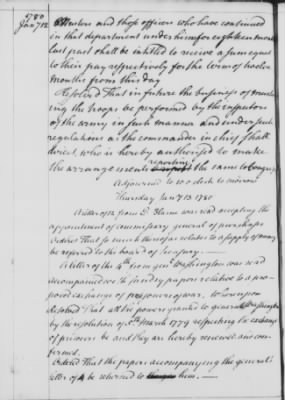 1780
Jany 12.
Musters and those officers who have continued
in that department under him for eighteen months
last past shall be intitled to receive a sum equal
to their pay respectively for the term of twelve
months from this day
Resolved That in future the business of muster
ing the troops be performed by the inspectors
of the army in such manner and under such
regulations as the commander in chief shall
direct, who is hereby authorised to make
the arrangements reporting the same to Congress
Adjourned to 10 o'Clock to morrow
Thursday Jany 13. 1780
A letter of from E Blaine was read accepting the
appointment of commissary general of purchases
Ordered That so much thereof as relates to a supply of money
be referred to the board of treasury.
A letter of the 4th from genl Washington was read
accompanied with sundry papers relative to a pro
posed exchange of prisoners of war. Whereupon
Resolved That all the powers granted to general Washington
by the resolution of 5th March 1779 respecting the exchange
of prisoners be and they are hereby renewed and con
firmed.
Ordered That the papers accompanying the general's
letter of 4 be returned to him.